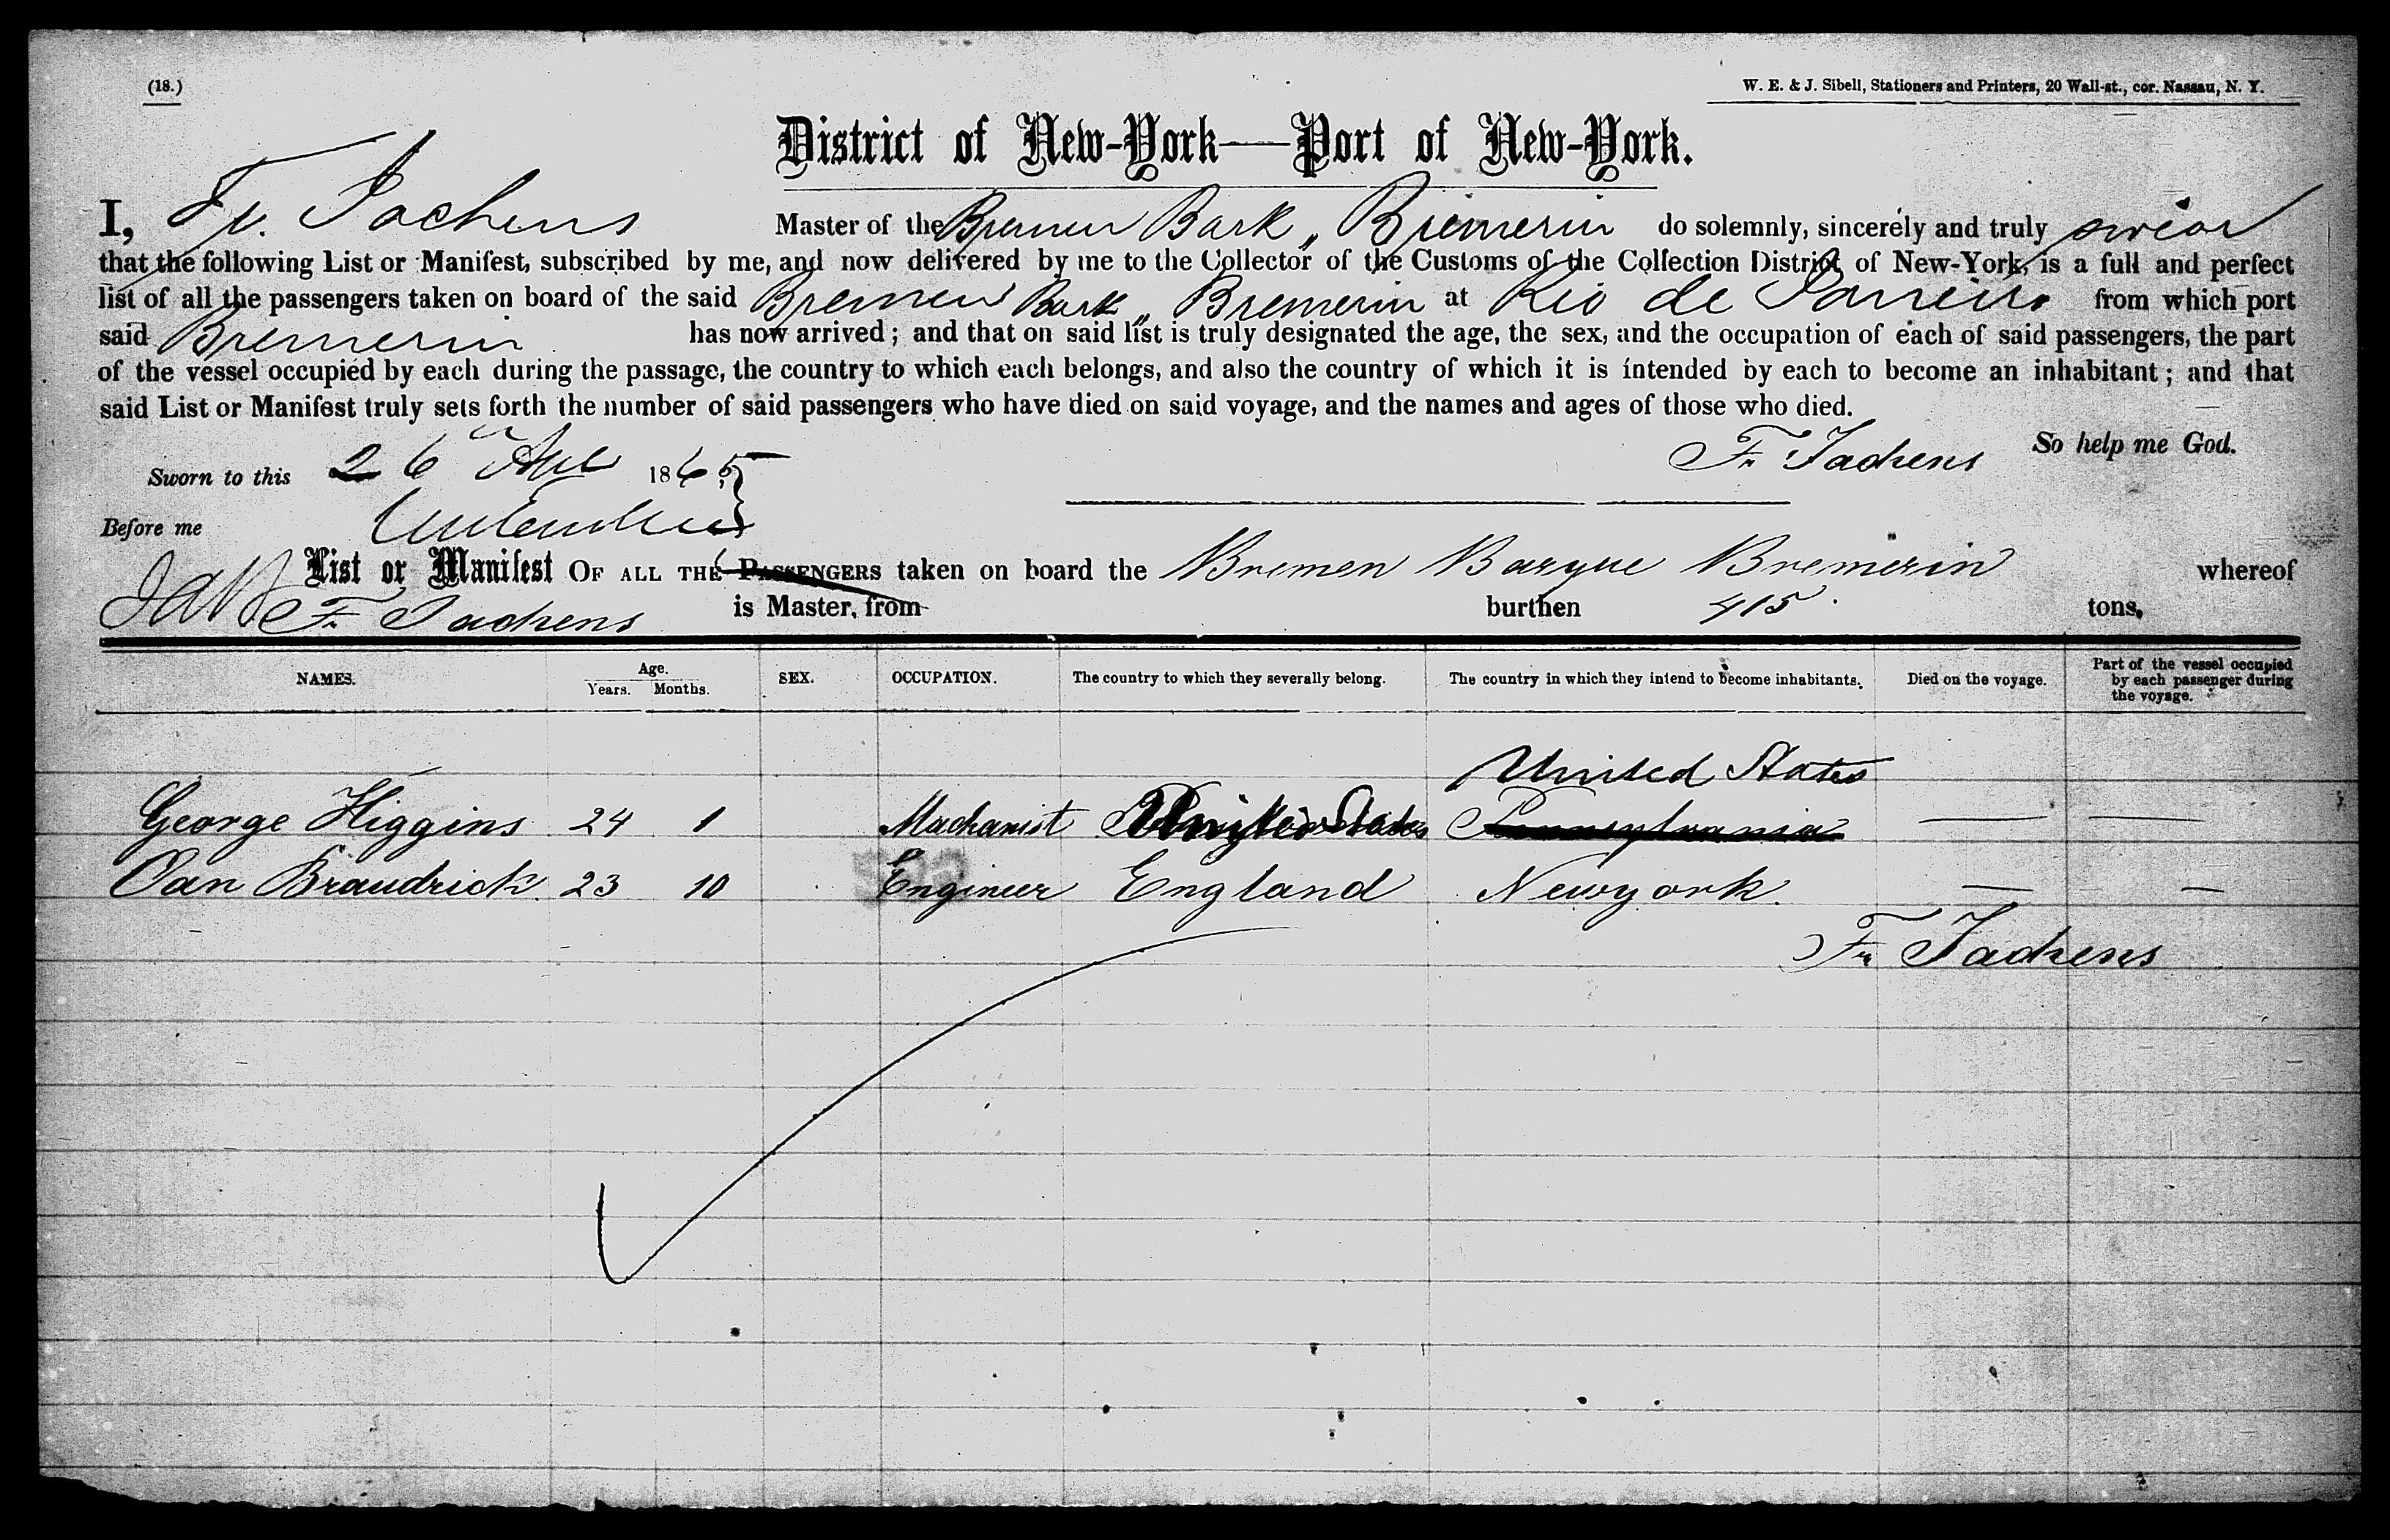 (18.)
W. E. & J. Sibell, Stationers and Printers, 20 Wall-st., cor. Nassau, N. Y.
District of New-York—Port of New-York.
I, Fr. Jachens Master of the Bremen Bark „ Bremerin do solemnly, sincerely and truly swear
that the following List or Manifest, subscribed by me, and now delivered by me to the Collector of the Customs of the Collection District of New-York, is a full and perfect
list of all the passengers taken on board of the said Bremen Bark „ Bremerin at Rio de Janeiro from which port
said Bremerin has now arrived; and that on said list is truly designated the age, the sex, and the occupation of each of said passengers, the part
of the vessel occupied by each during the passage, the country to which each belongs, and also the country of which it is intended by each to become an inhabitant; and that
said List or Manifest truly sets forth the number of said passengers who have died on said voyage, and the names and ages of those who died.
So help me God.
Sworn to this 26 Apl 1865 Fr Jachens
Before me
List or Manifest OF ALL THE PASSENGERS taken on board the Bremen Barque Bremerin whereof
Fr. Jachens is Master, from burthen 415 tons.
NAMES. Age. Years. Months. SEX. OCCUPATION. The country to which they severally belong. The country in which they intend to become inhabitants. Died on the voyage. Part of the vessel occupied by each passenger during the voyage.
United States
George Higgins 24 1 Machanist United States Pennsylvania — —
Dan Braudrick 23 10 Engineer England Newyork. — —
Fr Jachens